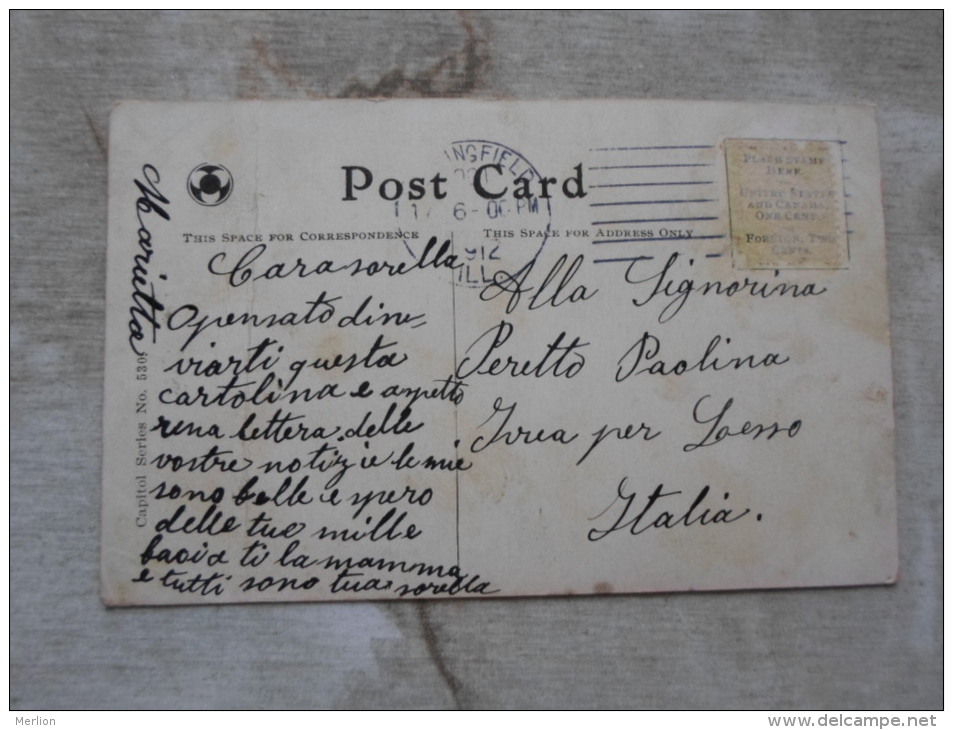 Post Card
INGFIELD
6-00 PM
912
ILL.
PLACE STAMP
HERE.
UNITED STATES
AND CANADA,
ONE CENT.
FOREIGN, TWO
CENTS.
THIS SPACE FOR CORRESPONDENCE
THIS SPACE FOR ADDRESS ONLY
Marietta
Capitol Series No. 530
Cara sorella
O pensato din=
viarti questa
cartolina e aspetto
rena lettera delle
vostre notizie le mie
sono belle e spero
delle tue mille
baci a ti la mamma
e tutti sono tua sorella
Alla Signorina
Peretto Paolina
Ivrea per Lesso
Italia.
Merlion
www.delcampe.net